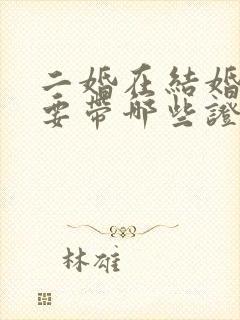 二婚在結婚
要帶哪些證
林雄